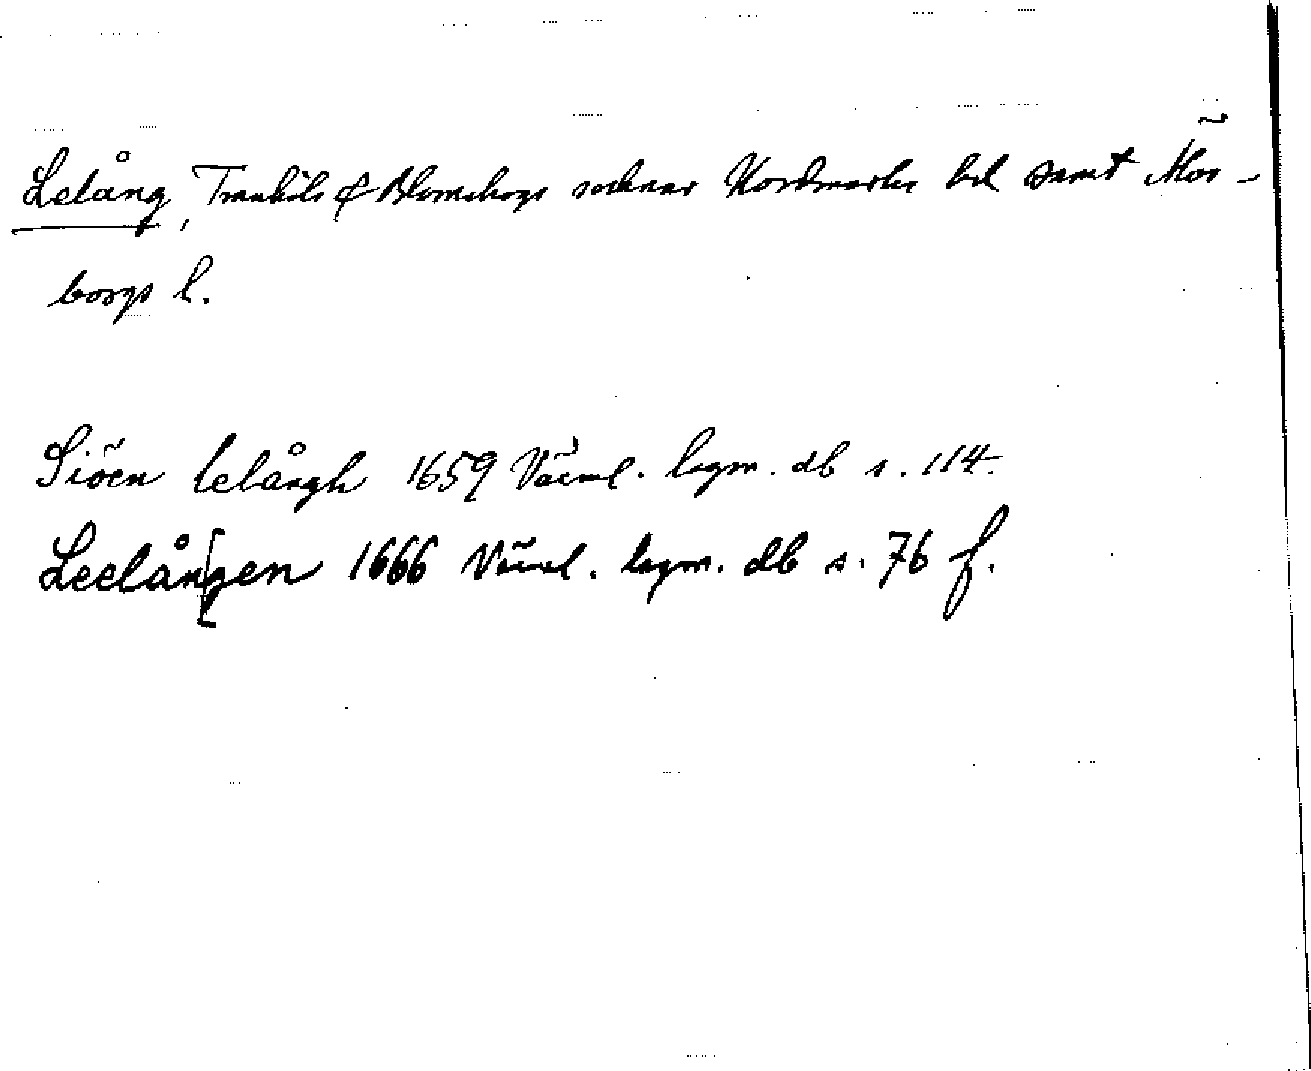 Lelång, Trankils & Blomskogs socknar Nordmarks hd samt Älvs-
borgs l.
Siöen lelångh 1659 Värml. lagm. db s. 114.
Leelången 1666 Värml. lagm. db s. 76 f.